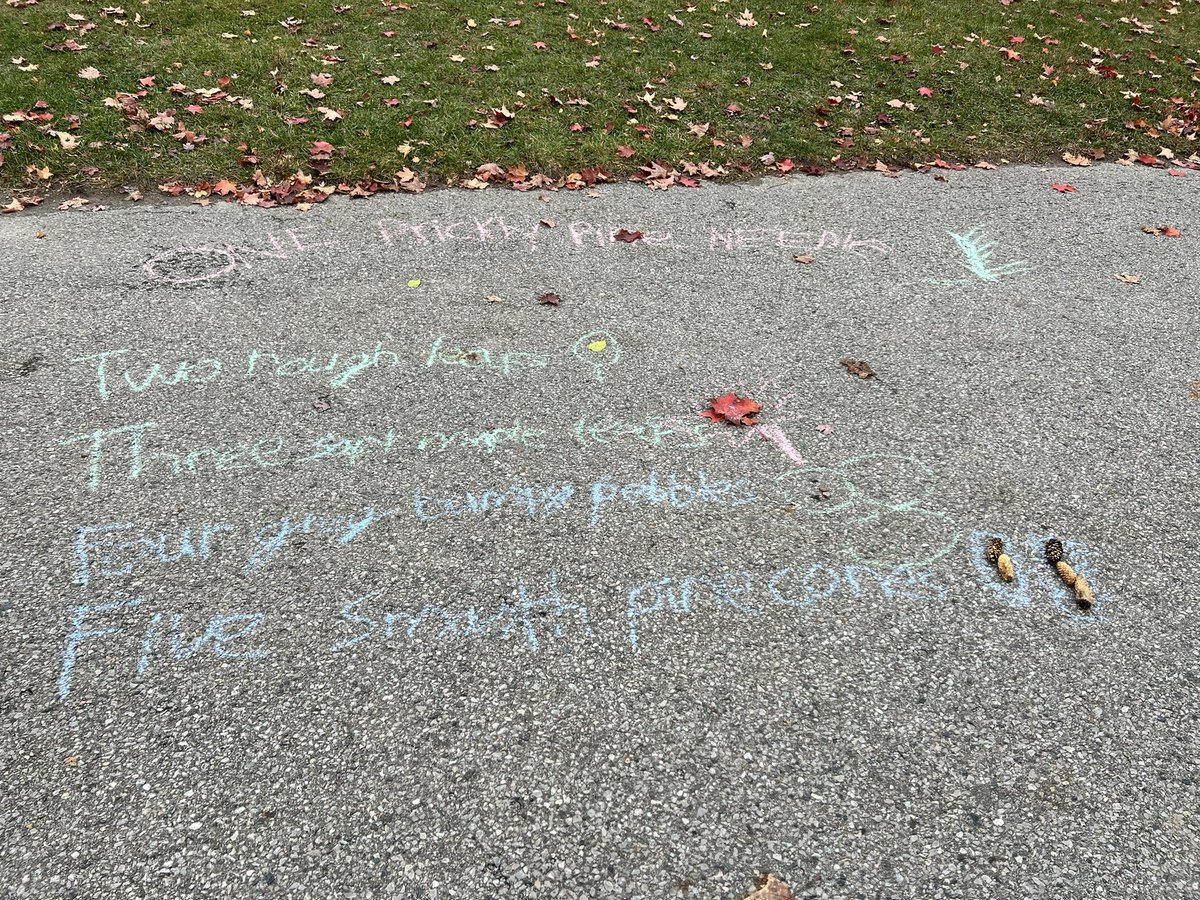 ONE Prickly PiNe NEEDLE
Two rough leaves
Three soft maple leaves
Four grey bumpy pebbles
Five Smouth pine cones